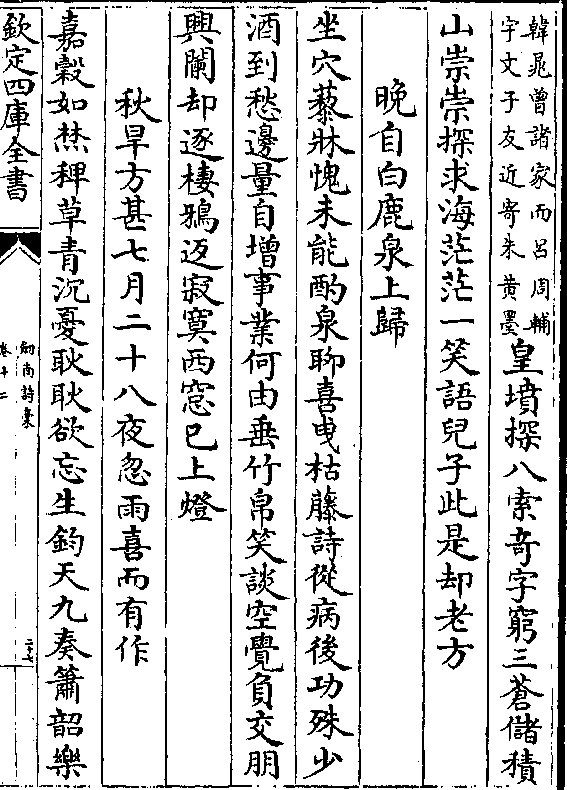 韓晁曾諸家而呂周輔
字文子友近寄朱黄墨
皇墳探八索竒字窮三蒼儲積
山崇崇探求海茫茫一笑語兒子此是却老方
晚自白鹿泉上歸
坐穴藜牀愧未能酌泉聊喜曵枯藤詩從病後功殊少
酒到愁邊量自增事業何由垂竹帛笑談空覺負交朋
興闌却逐棲鴉返寂寞西窓已上燈
秋旱方甚七月二十八夜忽雨喜而有作
嘉穀如焚稗草青沉憂耿耿欲忘生鈞天九奏簫韶樂
欽定四庫全書
劍南詩稾
卷十二